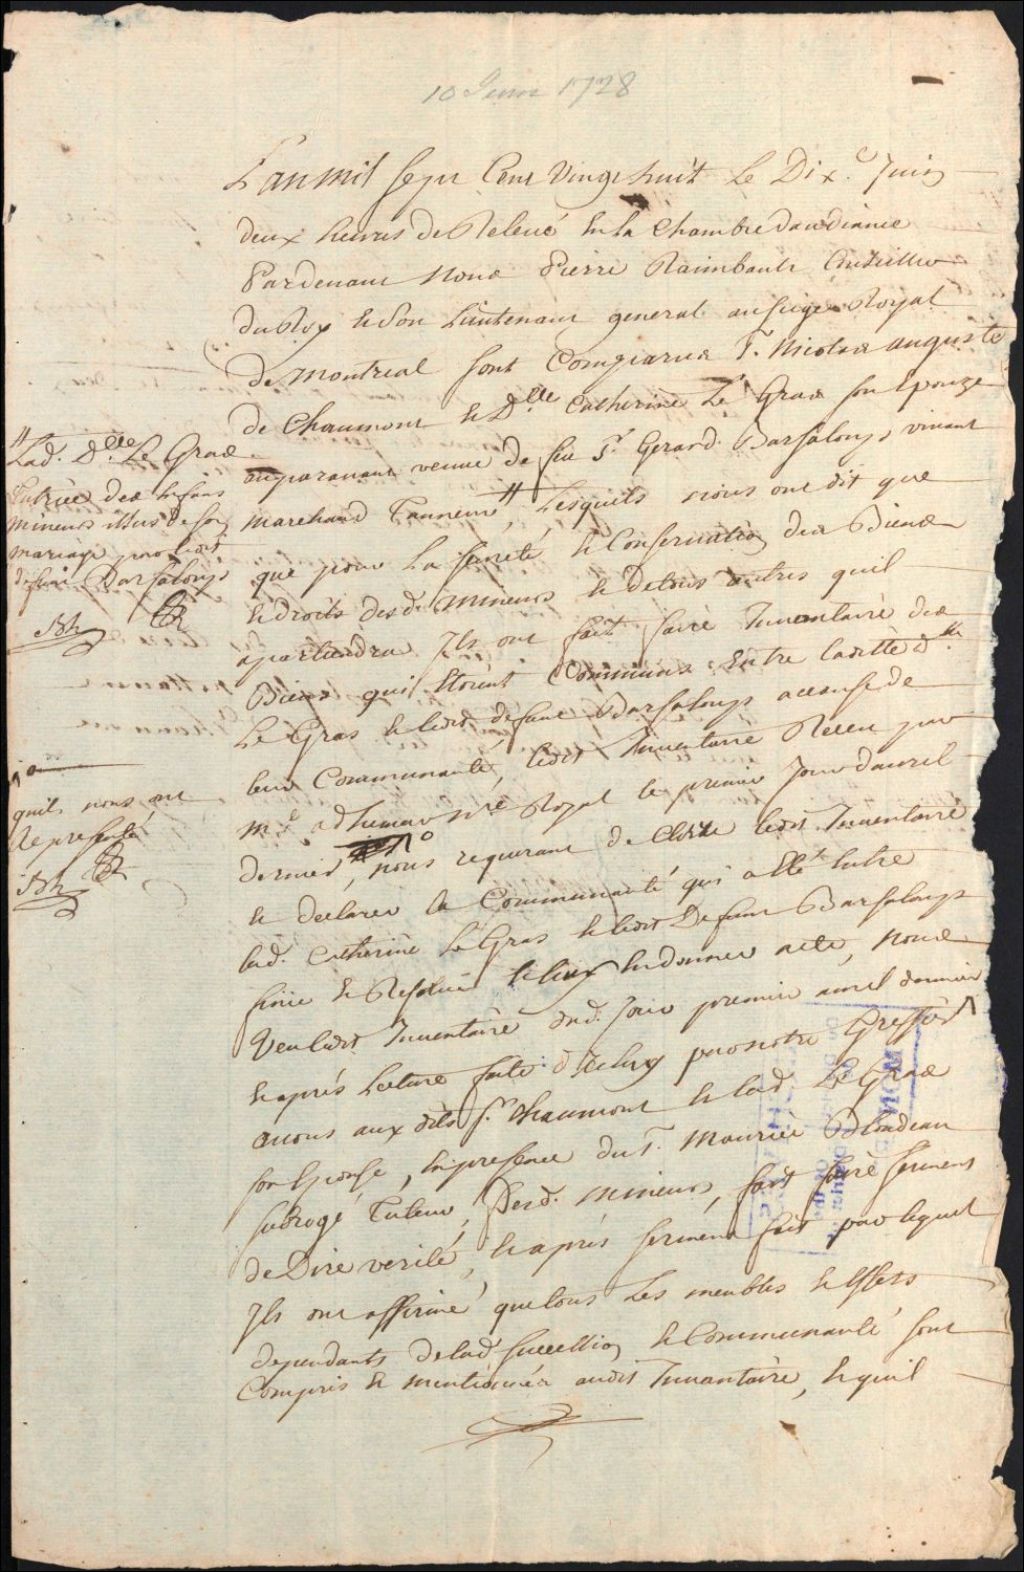 10 Juin 1728
L'an mil sept Cent Vingt huit Le Dix.e Juin
deux heures de Relevé En la Chambre daudiance
Pardevant Nous Pierre Raimbault Conseiller
du Roy et son Lieutenant general au siege Royal
de Montreal sont Comparus Sr. Nicolas auguste
de Chaumont et Dlle Catherine Le Gras son Epouze
auparavant veuve de feu Sr Gerard Barsaloup, vivant
marchand Tanneur // Lesquels nous ont dit que
que pour La sureté et Conservation des Biens
et droits desd. Mineurs et de tous autres quil
apartiendra Ils ont fait faire Inventaire des
Biens qui Etoient Communs Entre laditte dlle
Le Gras et ledit defunt Barsaloup a cause de
leur Communauté, ledit Inventaire Receu par
me adhemar nre Royal le premier Jour davril
dernier, nous requerant de Clore ledit Inventaire
et declarer la Communauté qui a Eté Entre
lad. Catherine Le Gras et ledit Defunt Barsaloup
finie et Resolue et leur En donner acte, Nous
Veu ledit Inventaire dud. Jour premier avril dernier
et après Lecture faite dIceluy par notre Greffier
avons aux dits Sr Chaumont et lad Le Gras
son Epouse, En presence du Sr. Maurice Blondeau
subrogé Tuteur desd. Mineurs, fait faire serment
de Dire verité, et après serment fait par lequel
Ils ont affirmé que tous Les meubles et Effets
dependants de lad succession et Communauté sont
Compris et mentionnés audit Inventaire, et quil
// Lad. Dlle Le Gras
Tutrice des Enfans
Mineurs issus de son
mariage avec ledit
defunt Barsaloup
quils nous ont
Representé